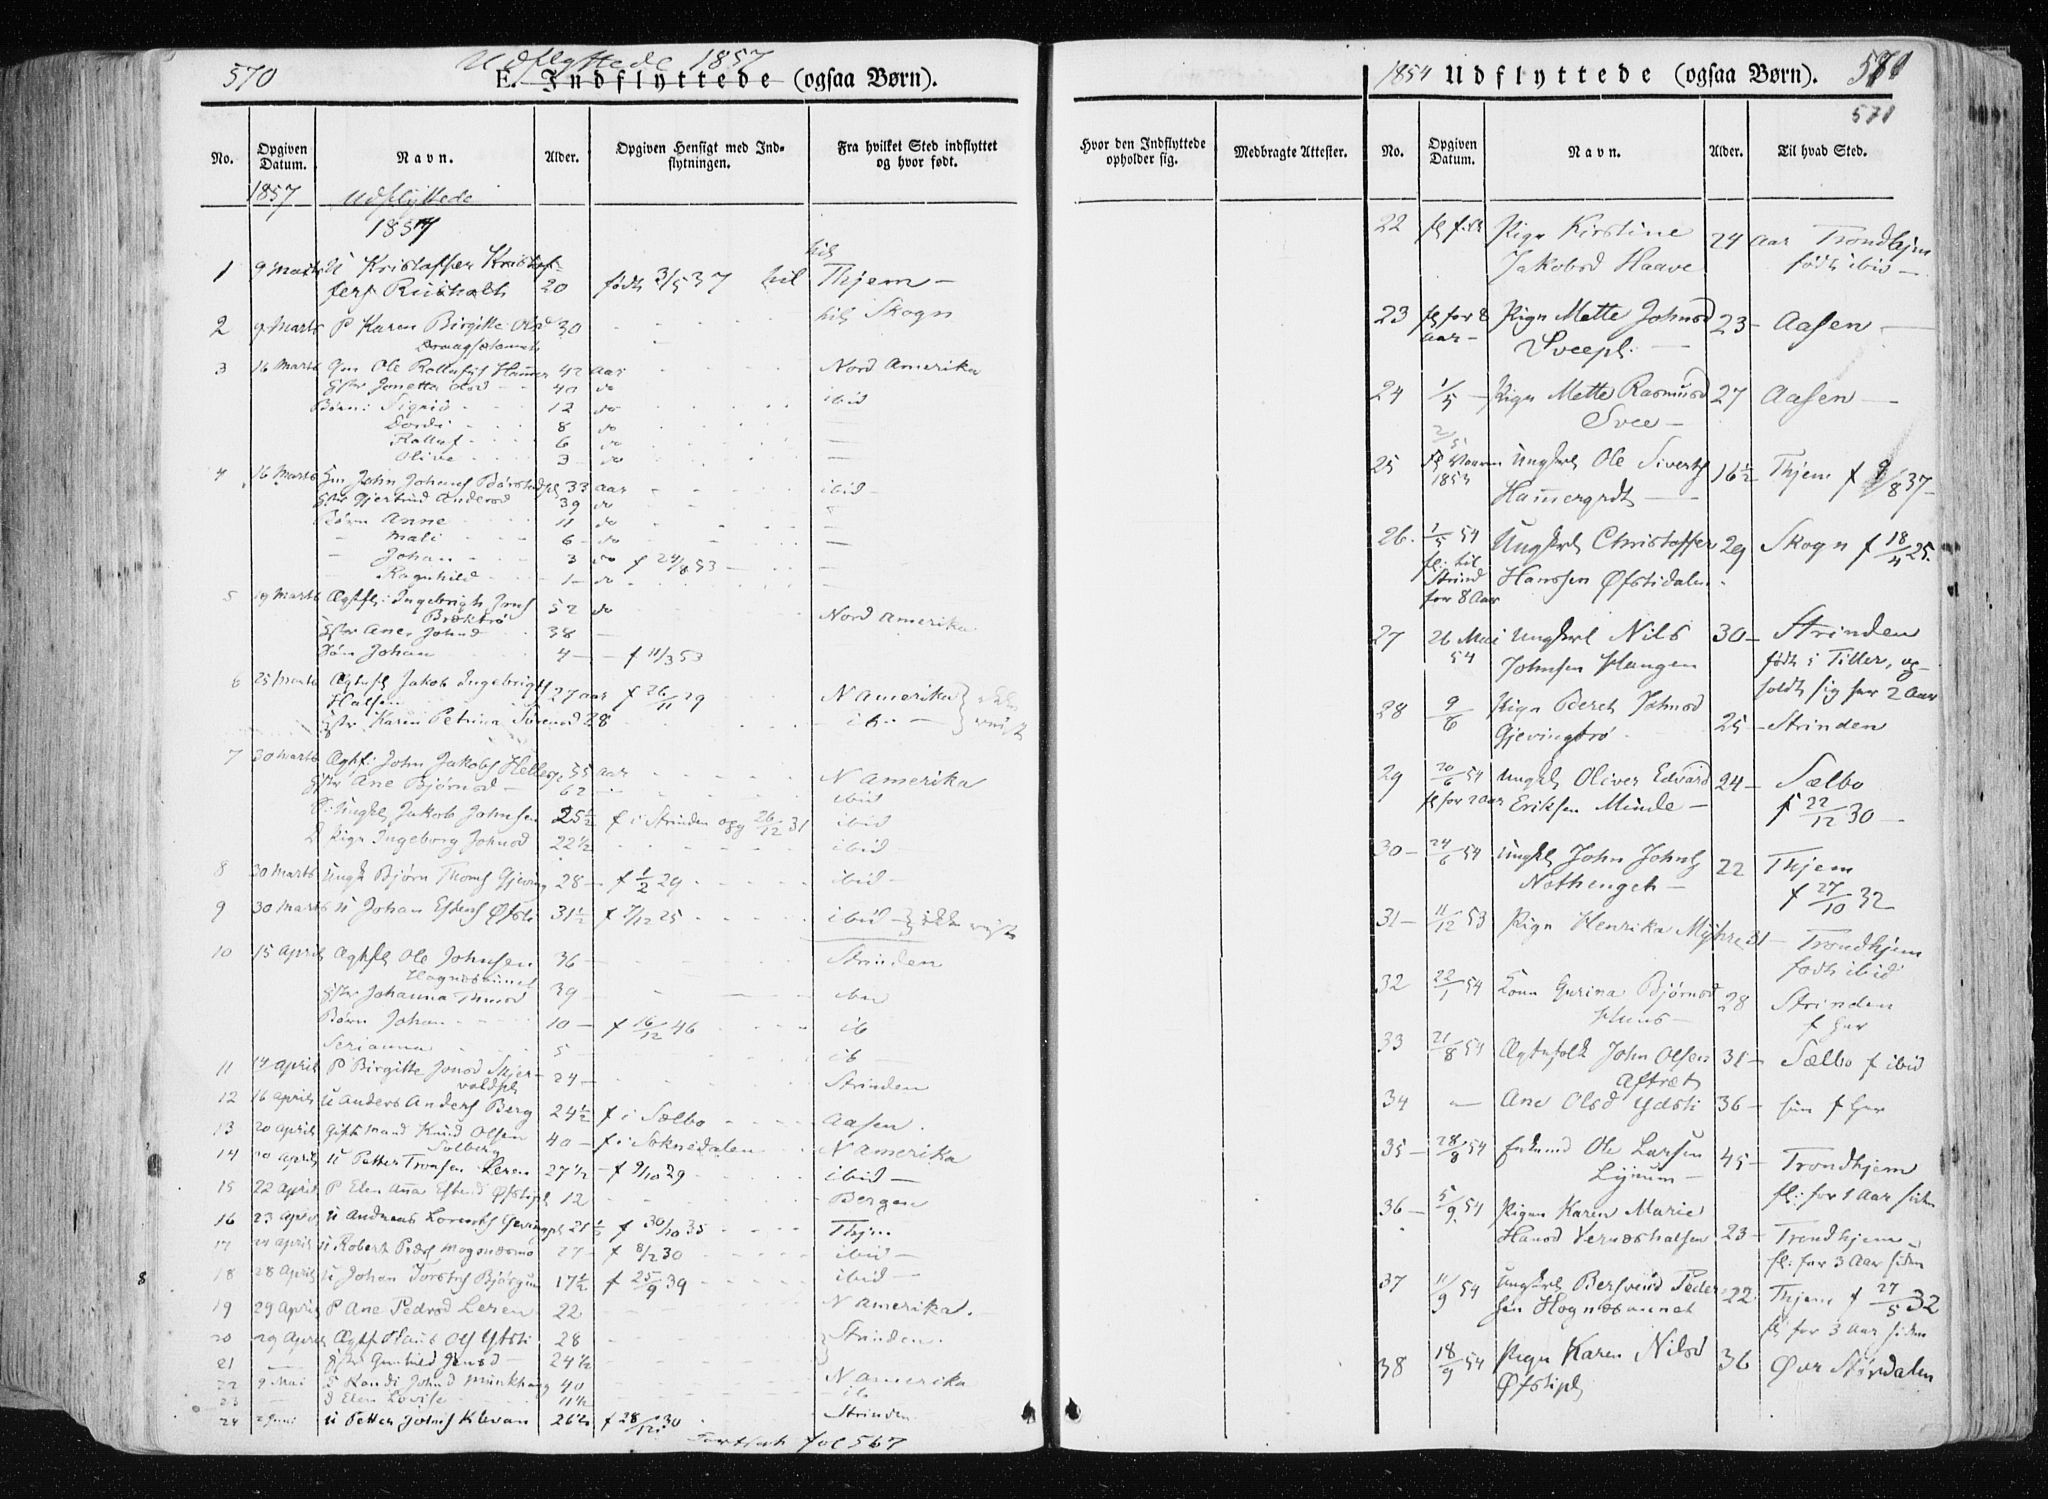 570
Udflyttede 1857
E. Indflyttede (ogsaa Børn).
No.
Opgiven Datum.
Navn.
Alder.
Opgiven Hensigt med Indflytningen.
Fra hvilket Sted indflyttet og hvor født.
1857 Udflyttede
1857
til
1 9 Marts U Kristoffer Kristof-
fers 20 født 3/5 37 til Thjem —
2 9 Marts P Karen Birgitte Olsd 30 til Skogn
3 16 Marts Gm Ole Rollufs Hammer 42 Aar Nord Amerika
Hstr Jonetta Olsd 40 do ibid
Børn: Sigrid 12 do
Dordi 8 do —
Rolluf 6 do —
Olive 3 do —
4 16 Marts Gm John Johns Børstadpl 33 aar ibid —
Hstr Gjertrud Andersd 39 do
Børn Anne 11 do —
— Mali 6 do —
— Johan 3 do f 24/8 53 —
— Ragnhild 1 — do —
5 19 Marts Ægtfl: Ingebrigt Jons 52 do Nord Amerika
Hstr Ane Johnsd 38 —
Søn Johan 4 — f 11/3 53
6 25 Marts Ægtfl Jakob Ingebrigts
Halsen 27 aar f 26/11 29 N Amerika
Hstr Karen Petrina 28 — ib. —
7 30 Marts Ægtf: John Jakobs 55 aar N Amerika
Hstr Ane Bjørnsd — 62 — ibid
S: Ungkl Jakob Johnsen 25½ f i Strinden 26/12 31 ibid
D Pign Ingeborg Johnsd 22½ ibid —
8 30 Marts Ungk Bjørn Thoms Gjeving 28 — f 1/2 29 ibid —
9 30 Marts U Johan Estens Øfsti 31½ f 7/12 25 ibid —
10 15 April Ægtfl Ole Johnsen 36 — Strinden
Hognesaunet
Hstr Johanna 39 —
Børn Johan 10 — f 16/12 46 ib
Serianna 5 — ib —
11 14 April P Birgitte Jonsd Skjer-
voldpl 24 — Strinden
12 16 April U Anders Anders Berg 24½ f i Sælbo Aasen.
13 20 April Gift mand Knud Olsen
Solberg 40 — f i Soknedalen N Amerika
14 20 April U Petter Leren 27½ — f 9/10 29 ibid —
15 22 April P Elen Anna Estensd Øfstipl 12 Bergen
16 23 April U Andreas Lorents Gevingpl 21½ f 30/10 35 Thjem
17 24 April U Robert Peders Mogenesmo 27 — f 8/2 30 ibid —
18 28 April U Johan Torsters Bjørgum 17½ f 25/9 39 ibid —
19 29 April P Ane Pedersd Leren 22 N Amerika. —
20 29 April Ægtf Ols Ydsti 28 Strinden.
21 — Hstr Gunhild Jensd — 24½
22 9 Mai Randi Johnsd Munkhaug 40 N Amerika
23 — D Elen Lovise 11½ ib
24 2 Juni U Petter Johns Klevan 26½ f 28/12 30 Strinden
Fortsat fol 567
Hvor den Indflyttede opholder sig.
Medbragte Attester.
1854 Udflyttede (ogsaa Børn). 571
571
No.
Opgiven Datum.
Navn.
Alder.
Til hvad Sted.
22 Pign Kirstine 24 Aar Trondhjem
Jakobsd Haave født ibid —
23 fl for 8 Pign Mette Johnsd 23 — Aasen —
Aar — Sveepl. —
24 1/5 — Pign Mette Rasmusd 27 Aasen —
Svee —
25 2/5 Vaaren Ungkrl Ole Siverts 16½ Thjem f 9/8 37 —
1853 Hammergrdt —
26. 1/5 54 Ungkrl Christoffer 29 Skogn f 18/4 25.
fl: til Hanssen Øfstidalen.
Strind
for 8 Aar
27 26 Mai Ungkrl Nils 30 — Strinden
54 Johnsen Haugen født i Tiller, og
holdt sig her 2 Aar
28 9/6 Pign Beret Johnsd 25 — Strinden
Gjevingtrø
29 20/6 54 Ungkl Oliver Edvard 24 — Sælbo
fl for 2 Aar Eriksen Minde — f 22/12 30 —
30 — 24/6 54 Ungkl John Johns 22 Thjem
— f 27/10 32
31 — 11/12 53 Pign Henrika Myhre 21 — Trondhjem
født ibid
32 22/1 54 Kone Gurina Bjørnsd 28 Strinden
Huus — f her
33 21/8 54 Ægtefolk John Olsen 31 — Sælbo f ibid
34 — Ane Olsd Ydsti 36 — hun f her
35 — 28/8 54 Enkmd Ole Larsen 45 — Trondhjem
fl: for 1 Aar siden
36 — 5/9. 54 Pigen Karen Marie
Hansd Verneshalsen 23 — Trondhjem —
fl: for 3 Aar siden
37 11/9 54 Ungkrl Bersvend Peder- 22. Thjem f 27/5 32
sen Hognesaunet fl for 3 Aar siden
38 18/9 54 Pign Karen Nilsd 36 Øvr Størdalen
Øfstipl